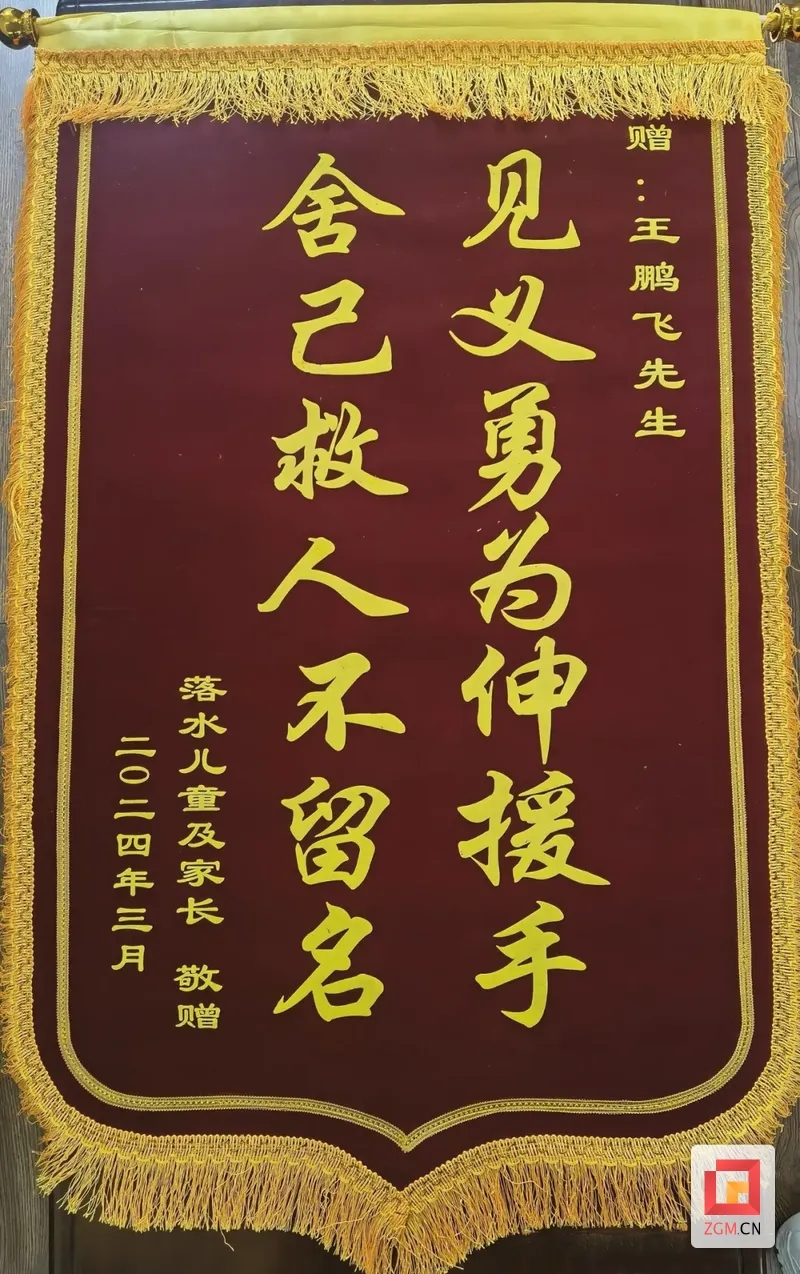 赠：王鹏飞先生
见义勇为伸援手
舍己救人不留名
落水儿童及家长 敬赠
二〇二四年三月
ZGM.CN